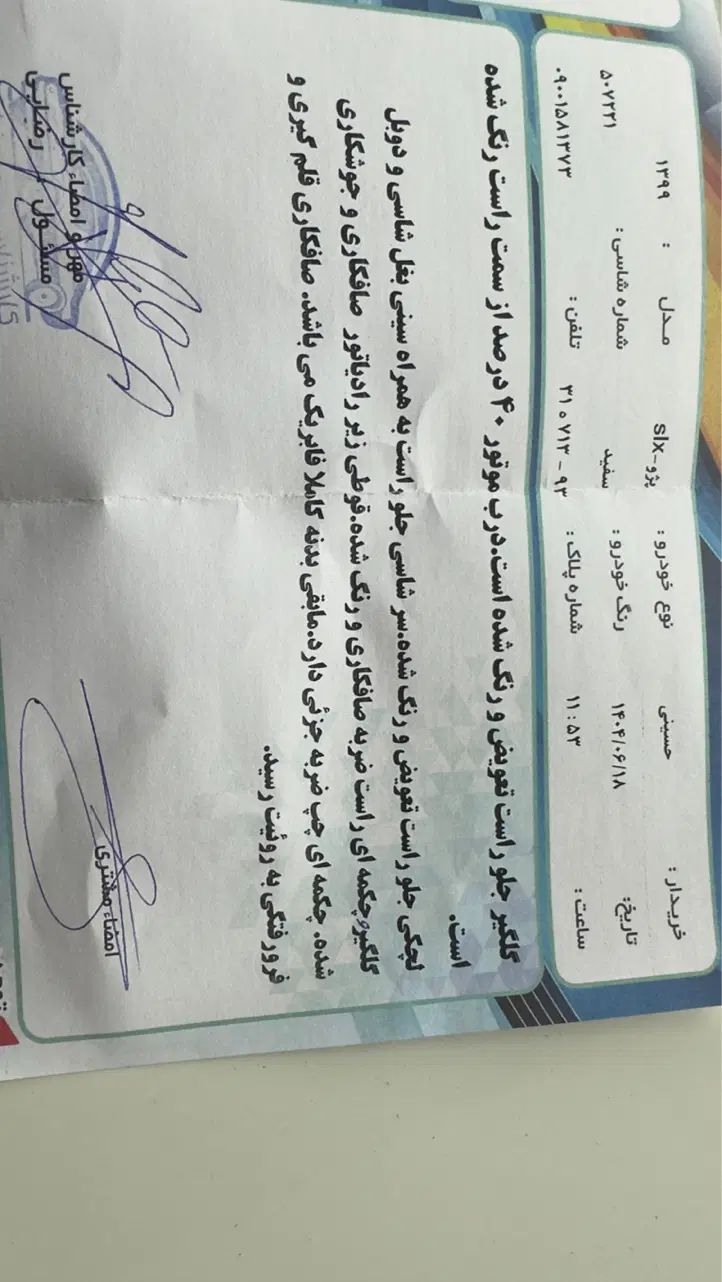 خریدار : حسینی نوع خودرو : پژو-slx مدل : ۱۳۹۹
تاریخ: ۱۴۰۴/۰۶/۱۸ رنگ خودرو : سفید شماره شاسی : ۵۰۷۲۲۱
ساعت : ۱۱:۵۳ شماره پلاک : ۹۳ - ۷۱۳ ه ۳۱ تلفن : ۰۹۰۰۱۵۸۱۳۷۳
گلگیر جلو راست تعویض و رنگ شده است.درب موتور ۴۰ درصد از سمت راست رنگ شده
است.
لچکی جلو راست تعویض و رنگ شده.سر شاسی جلو راست به همراه سینی بغل شاسی و دوبل
گلگیروچکمه ای راست ضربه صافکاری و رنگ شده.قوطی زیر رادیاتور صافکاری و جوشکاری
شده. چکمه ای چپ ضربه جزئی دارد.مابقی بدنه کاملا فابریک می باشد. صافکاری قلم گیری و
فرورفتگی به روئیت رسید.
امضاء مشتری
مهر و امضاء کارشناس
مسئول رضایی